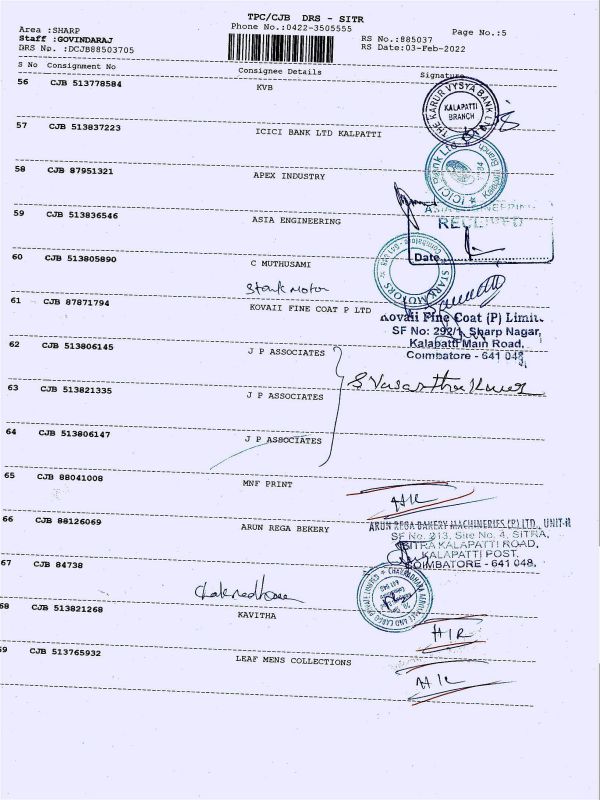 TPC/CJB DRS - SITR
Area :SHARP
Phone No.:0422-3505555
Page No.:5
Staff :GOVINDARAJ
RS No.:885037
DRS No. :DCJB88503705
RS Date:03-Feb-2022
S No Consignment No Consignee Details Signature
56 CJB 513778584 KVB
THE KARUR VYSYA BANK LTD
KALAPATTI
BRANCH
57 CJB 513837223 ICICI BANK LTD KALPATTI
ICICI Bank Ltd
58 CJB 87951321 APEX INDUSTRY
59 CJB 513836546 ASIA ENGINEERING
ASIA ENGINEERING
RECEIVED
Date
60 CJB 513805890 C MUTHUSAMI
STARK MOTORS Coimbatore - 641 048
Stark Motor
61 CJB 87871794 KOVAII FINE COAT P LTD
Kovaii Fine Coat (P) Limit
SF No: 292/1, Sharp Nagar,
Kalapatti Main Road,
Coimbatore - 641 048.
62 CJB 513806145 J P ASSOCIATES
63 CJB 513821335 J P ASSOCIATES
64 CJB 513806147 J P ASSOCIATES
65 CJB 88041008 MNF PRINT
66 CJB 88126069 ARUN REGA BEKERY
ARUN REGA BAKERY MACHINERIES (P) LTD., UNIT-II
SF No. 213, Site No. 4, SITRA,
SITRA KALAPATTI ROAD,
KALAPATTI POST,
COIMBATORE - 641 048.
67 CJB 84738
68 CJB 513821268 KAVITHA
HR
69 CJB 513765932 LEAF MENS COLLECTIONS
HR